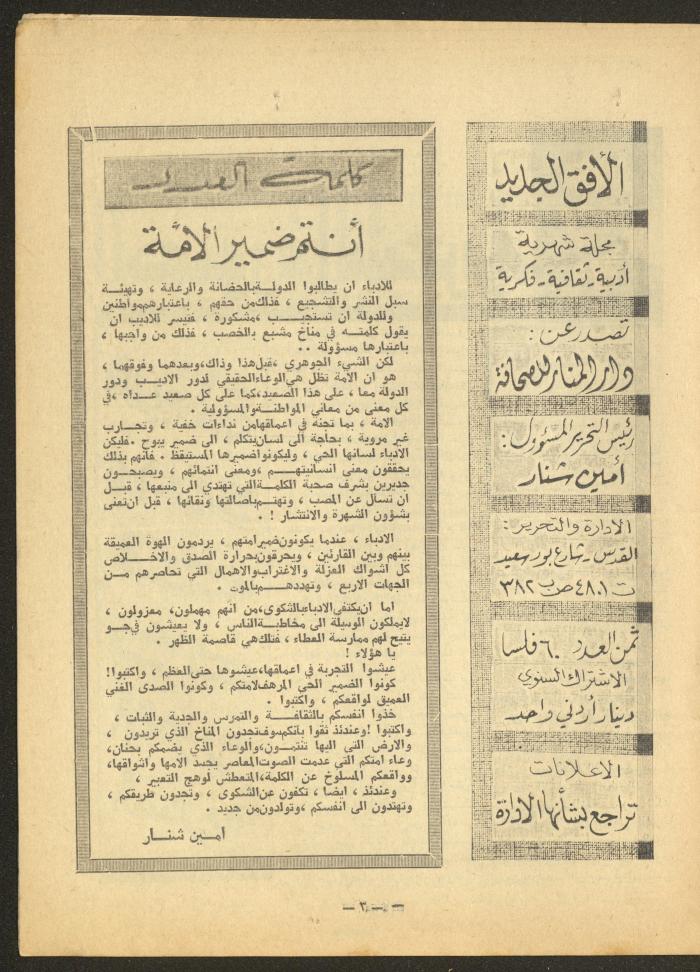 الأفق الجديد
مجلة شهرية
أدبية - ثقافية - فكرية
تصدر عن :
دار المنار للصحافة
رئيس التحرير المسؤول :
أمين شنار
الادارة والتحرير :
القدس - شارع بور سعيد
ت ٤٨٠١ ص ب ٣٨٢
ثمن العدد ٦٠ فلسا
الاشتراك السنوي
دينار أردني واحد
الاعلانات
تراجع بشأنها الادارة
كلمة العدد
أنتم ضمير الأمة
للادباء ان يطالبوا الدولة بالحضانة والرعاية ، وتهيئة
سبل النشر والتشجيع ، فذلك من حقهم ، باعتبارهم مواطنين
وللدولة ان تستجيب ، مشكورة ، فتيسر للاديب ان
يقول كلمته في مناخ مشبع بالخصب ، فذلك من واجبها ،
باعتبارها مسؤولة . .
لكن الشيء الجوهري ، قبل هذا وذاك ، وبعدهما وفوقهما ،
هو ان الامة تظل هي الوعاء الحقيقي لدور الاديب ودور
الدولة معا ، على هذا الصعيد ، كما على كل صعيد عداه ، في
كل معنى من معاني المواطنة والمسؤولية .
الامة ، بما تجنه في اعماقها من نداءات خفية ، وتجارب
غير مروية ، بحاجة الى لسان يتكلم ، الى ضمير يبوح . فليكن
الادباء لسانها الحي ، وليكونوا ضميرها المستيقظ . فانهم بذلك
يحققون معنى انسانيتهم ، ومعنى انتمائهم ، ويصبحون
جديرين بشرف صحبة الكلمة التي تهتدي الى منبعها ، قبل
ان تسأل عن المصب ، وتهتم باصالتها ونقائها ، قبل ان تعنى
بشؤون الشهرة والانتشار ! .
الادباء ، عندما يكونون ضمير امتهم ، يردمون الهوة العميقة
بينهم وبين القارئين ، ويحرقون بحرارة الصدق والاخلاص
كل اشواك العزلة والاغتراب والاهمال التي تحاصرهم من
الجهات الاربع ، وتهددهم بالموت .
اما ان يكتفي الادباء بالشكوى ، من انهم مهملون ، معزولون ،
لا يملكون الوسيلة الى مخاطبة الناس ، ولا يعيشون في جو
يتيح لهم ممارسة العطاء ، فتلك هي قاصمة الظهر .
يا هؤلاء !
عيشوا التجربة في اعماقها ، عيشوها حتى العظم ، واكتبوا !
كونوا الضمير الحي المرهف لامتكم ، وكونوا الصدى الفني
العميق لواقعكم ، واكتبوا .
خذوا انفسكم بالثقافة والتمرس والجدية والثبات ،
واكتبوا ! وعندئذ ثقوا بانكم سوف تجدون المناخ الذي تريدون ،
والارض التي اليها تنتمون ، والوعاء الذي يضمكم بحنان ،
وعاء امتكم التي عدمت الصوت المعاصر يجسد الامها واشواقها ،
وواقعكم المسلوخ عن الكلمة ، المتعطش لوهج التعبير ،
وعندئذ ، ايضا ، تكفون عن الشكوى ، وتجدون طريقكم ،
وتهتدون الى انفسكم ، وتولدون من جديد .
أمين شنار
— ٣ —